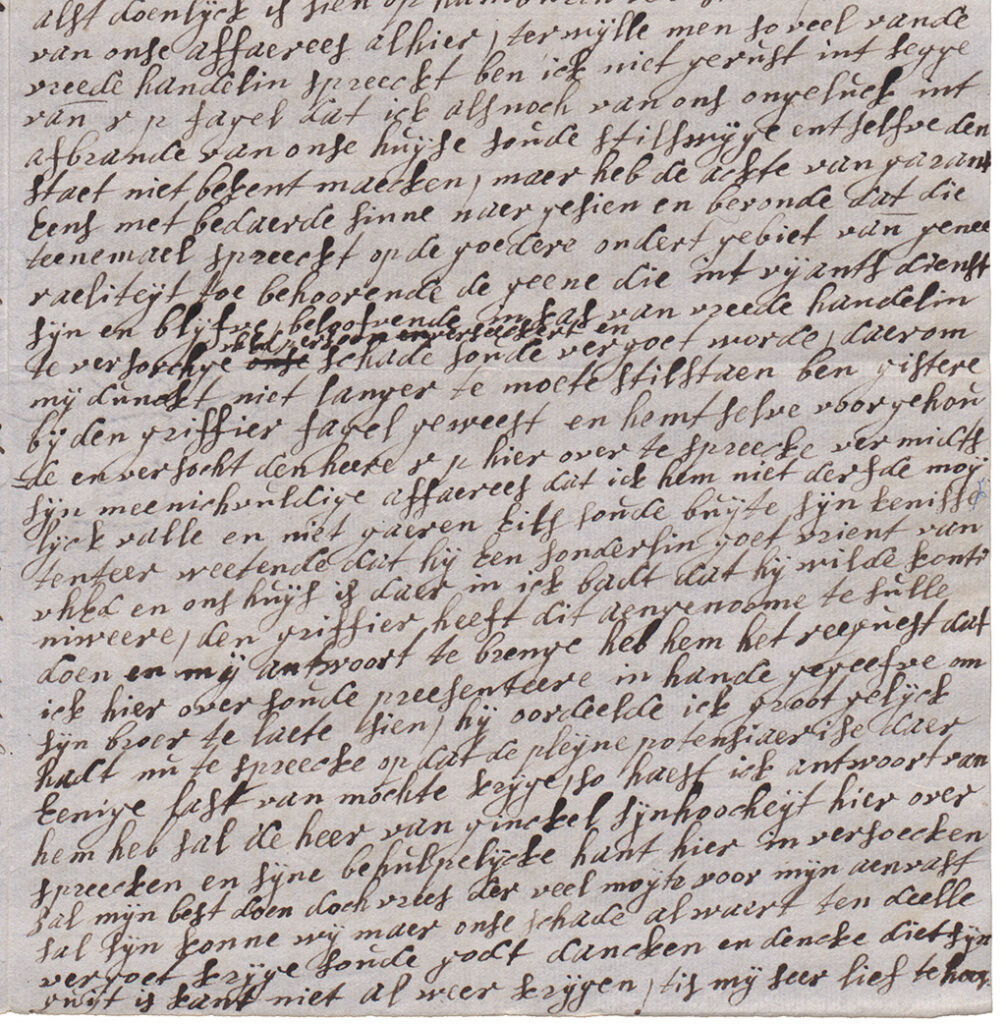 alst doenlyck is sien op
van onse affaerees alhier, termylle men so veel vande
vreede handelin spreeckt ben ick niet gerust int segge
van r p fagel dat ick als noch van ons ongeluck int
afbrande van onse huyse soude stilswyge ent selfve den
staet niet bekent maecken, maer heb de ackte van garant
eens met bedaerde sinne naer gesien en beronde dat die
teenemael spreeckt op de goedere ondert gebiet van genee
raeliteyt toe behoorende de geene die int vyants dienst
syn en blyfve, beloofvende in kas van vreede handelin
te versorchge onse schade soude vergoet worde, daerom
my dunckt niet langer te moete stilstaen ben gistere
by den griffier fagel geweest en hemt selve voorgehou
de en versocht den heere r p hier over te spreecke vermidts
syn meenichvuldige affaerees dat ick hem niet dersde moy
lyck valle en niet gaeren iits soude buyte syn kenisse
tenteer weetende dat hy een sonderlin goet vrient van
uhEd en ons huys is daer in ick badt dat hy wilde konti
niweere, den griffier heeft dit aengenoome te sulle
doen en my antwoort te brenge heb hem het reequest dat
ick hier over soude preesenteere in hande gegeefve om
syn broer te laete sien, hy oordeelde ick groot gelyck
hadt nu te spreecke op dat de pleyne potensiaerise daer
eenige last van mochte kryge, so haest ick antwoort van
hem heb sal de heer van ginckel synhoocheyt hier over
spreecken en syne behulpelycke hant hier in versoecken
sal mijn best doen doch vrees der veel moyte voor mijn aenvast
sal syn konne wy maer onse schade al waert ten deelle
vergoet kryge soude godt dancken en dencke diet syn
quyt is kant niet al weer krygen, tis my seer lief te hoor